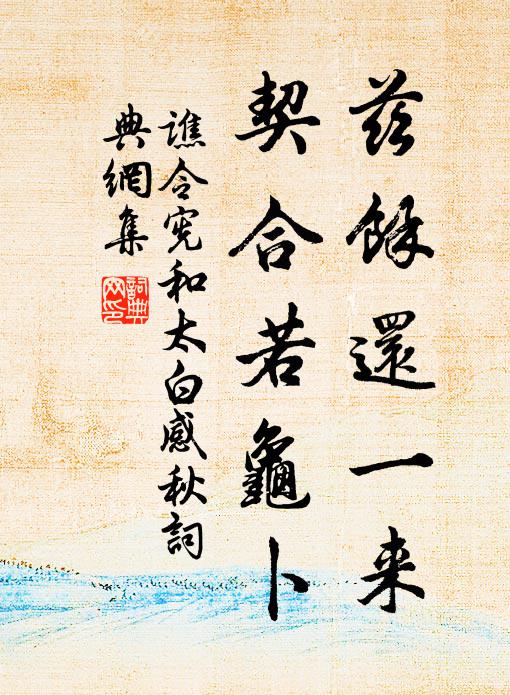 茲餘還一来
契合若龜卜
譙令宪和太白感秋詞
典網集
詞典網印